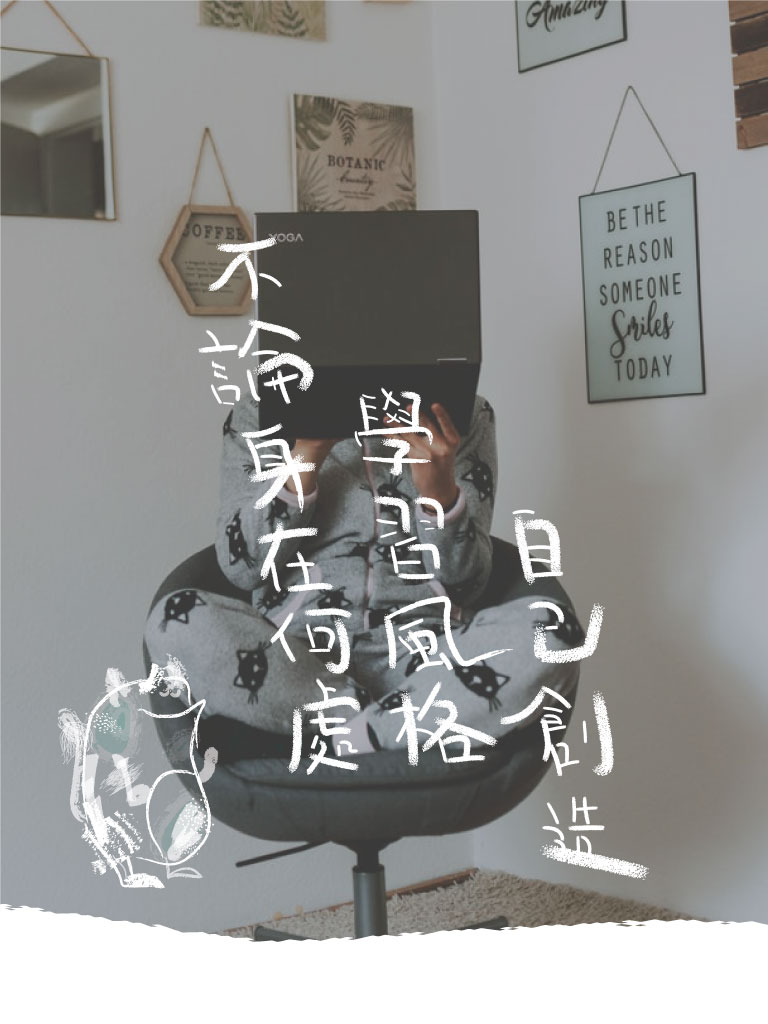 Amazing
BOTANIC
COFFEE
YOGA
BE THE
REASON
SOMEONE
Smiles
TODAY
不論身在何處
學習風格
自己創造